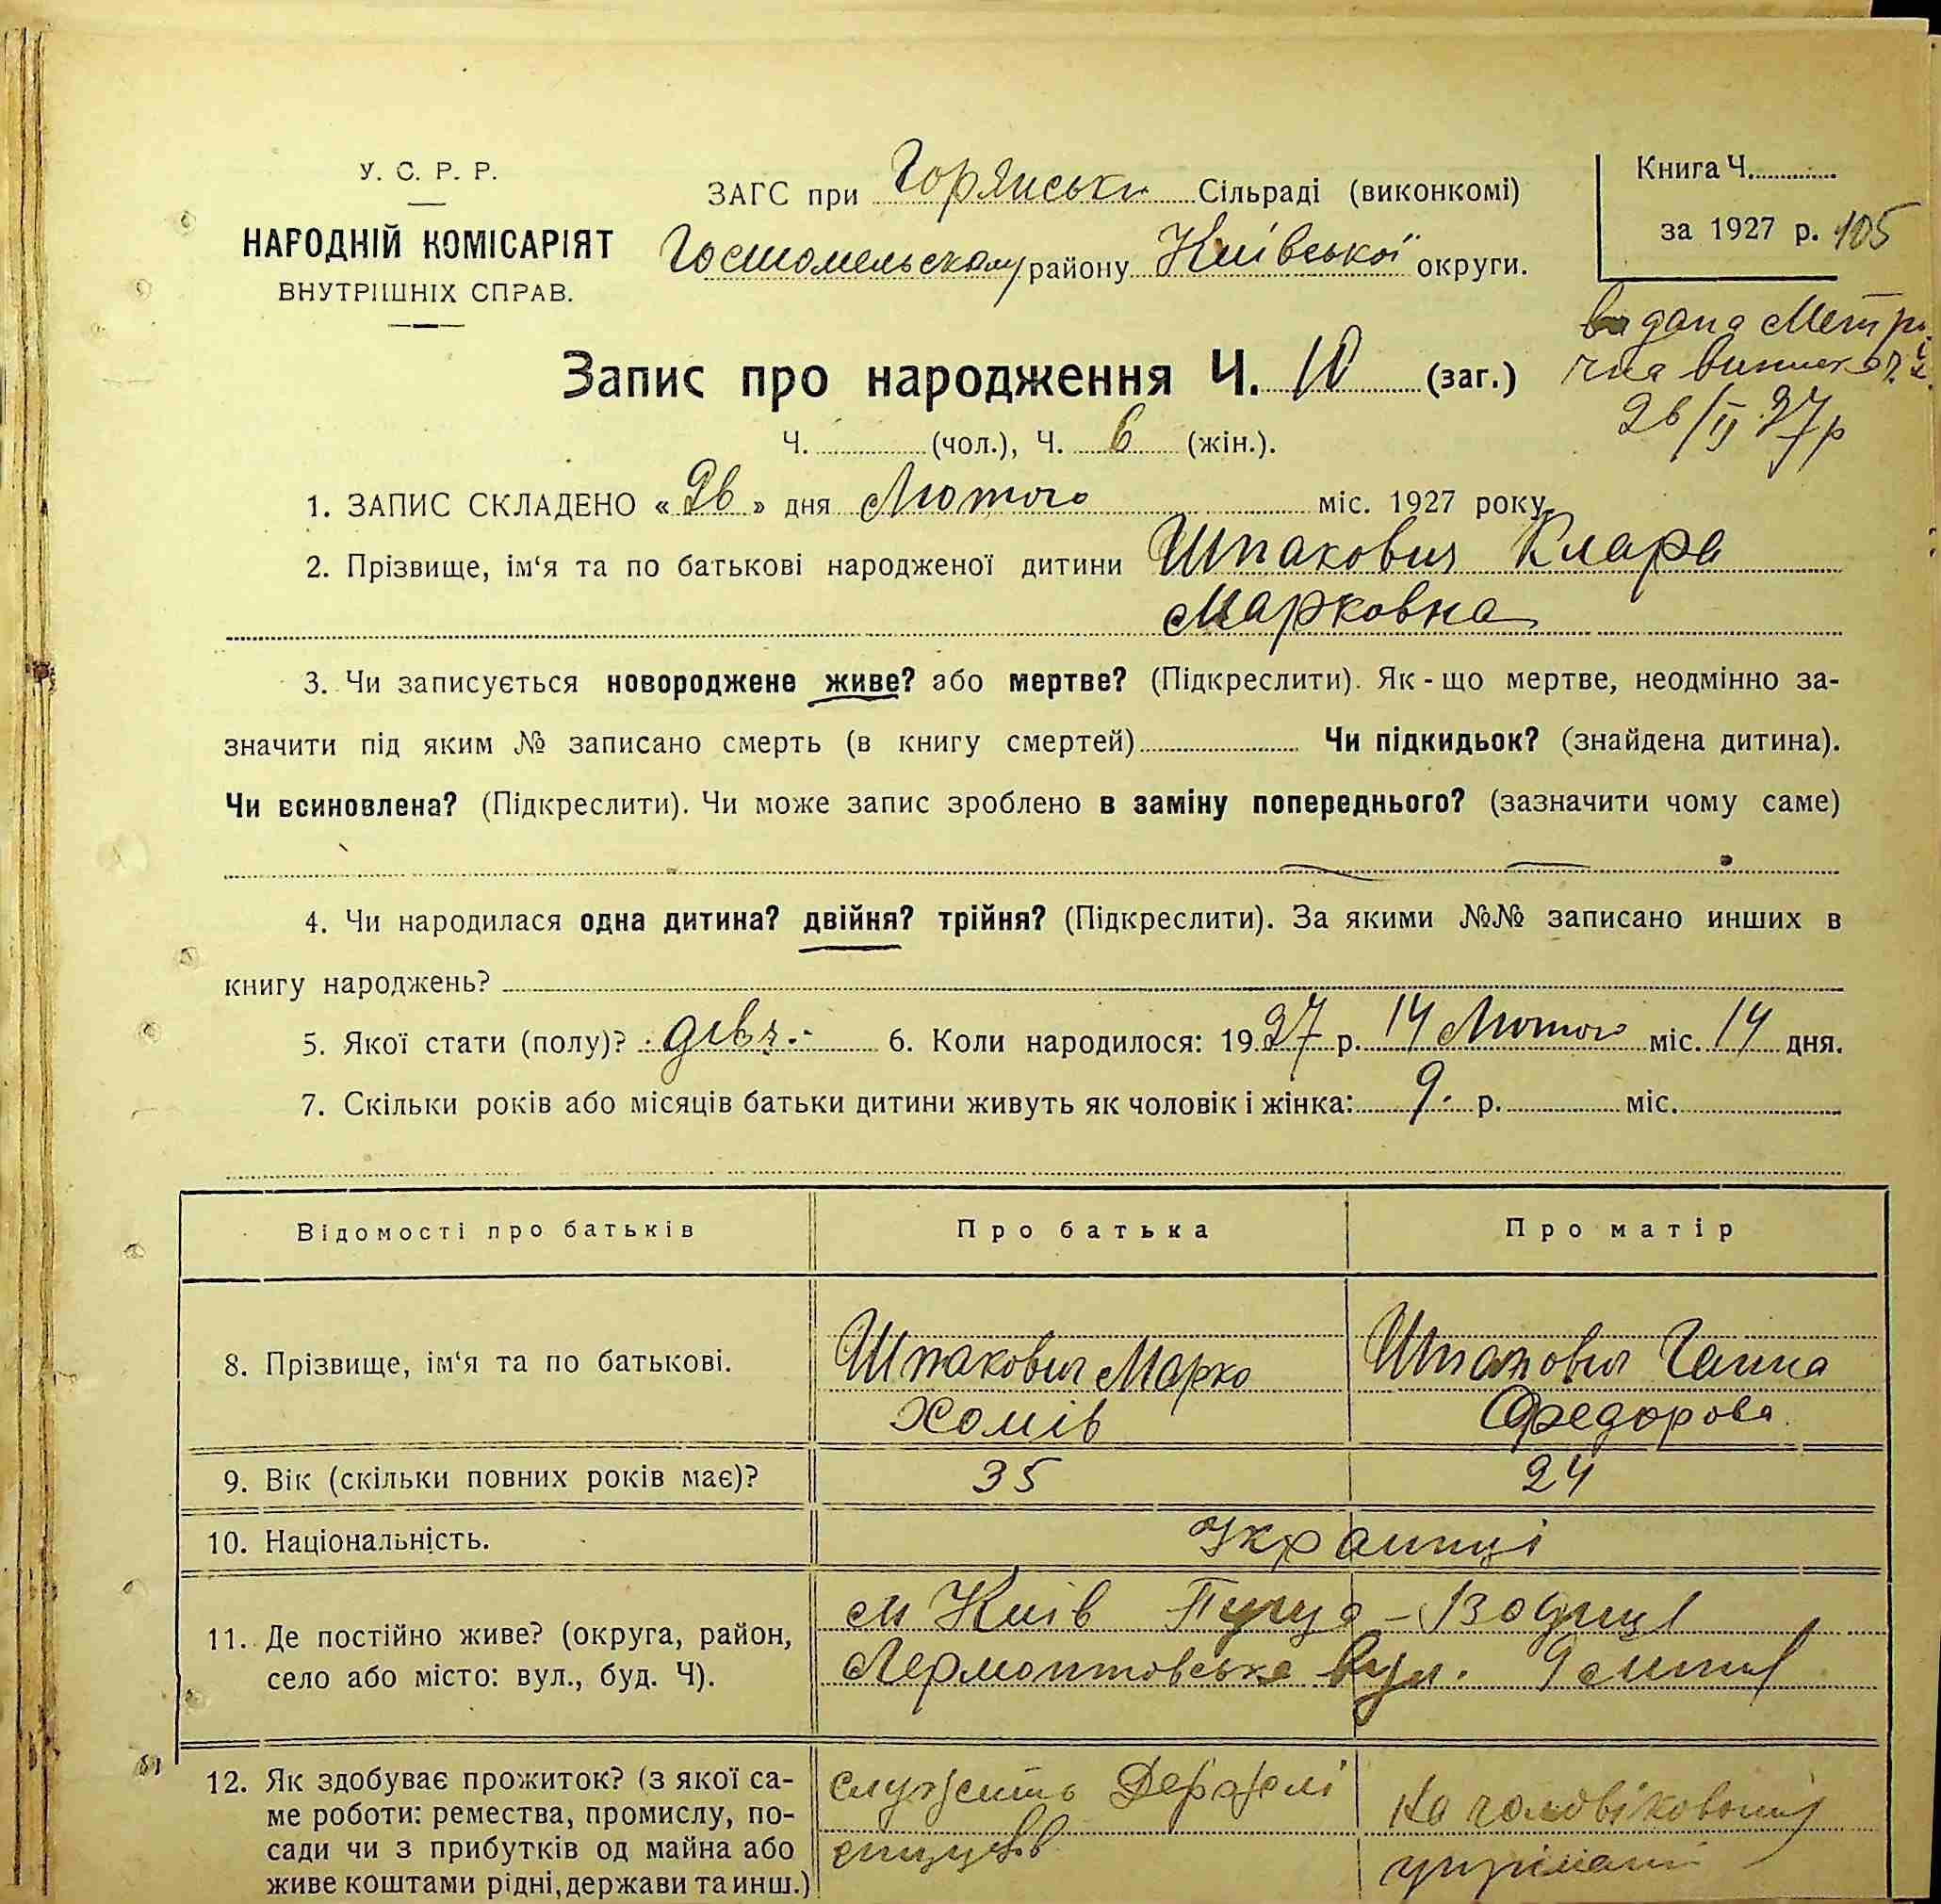 У. С. Р. Р.
НАРОДНІЙ КОМІСАРІЯТ
ВНУТРІШНІХ СПРАВ.
ЗАГС при Горянськи Сільраді (виконкомі)
Гостомельскому району Київської округи.
Книга Ч.
за 1927 р. 105
видана Метри
чна
26/II 27р
Запис про народження Ч. 10 (заг.)
Ч. (чол.), Ч. 6 (жін.).
1. ЗАПИС СКЛАДЕНО « 26 » дня Лютого міс. 1927 року.
2. Прізвище, ім‘я та по батькові народженої дитини Шпакович Клара
Марковна
3. Чи записується новороджене живе? або мертве? (Підкреслити). Як - що мертве, неодмінно за-
значити під яким № записано смерть (в книгу смертей) Чи підкидьок? (знайдена дитина).
Чи всиновлена? (Підкреслити). Чи може запис зроблено в заміну попереднього? (зазначити чому саме)
4. Чи народилася одна дитина? двійня? трійня? (Підкреслити). За якими №№ записано инших в
книгу народжень?
5. Якої стати (полу)? дівч. 6. Коли народилося: 1927 р. 14 Лютого міс. 14 дня.
7. Скільки років або місяців батьки дитини живуть як чоловік і жінка: 9. р. міс.
Відомості про батьків Про батька Про матір
8. Прізвище, ім‘я та по батькові. Шпакович Марко Шпакович Ганна
Хомів Федорова
9. Вік (скільки повних років має)? 35 24
10. Національність. Українці
11. Де постійно живе? (округа, район,
село або місто: вул., буд. Ч).
м Київ Пуща - Водиця
Лермонтовська вул. 9
12. Як здобуває прожиток? (з якої са-
ме роботи: ремества, промислу, по-
сади чи з прибутків од майна або
живе коштами рідні, держави та инш.)
служить
на чоловіковому